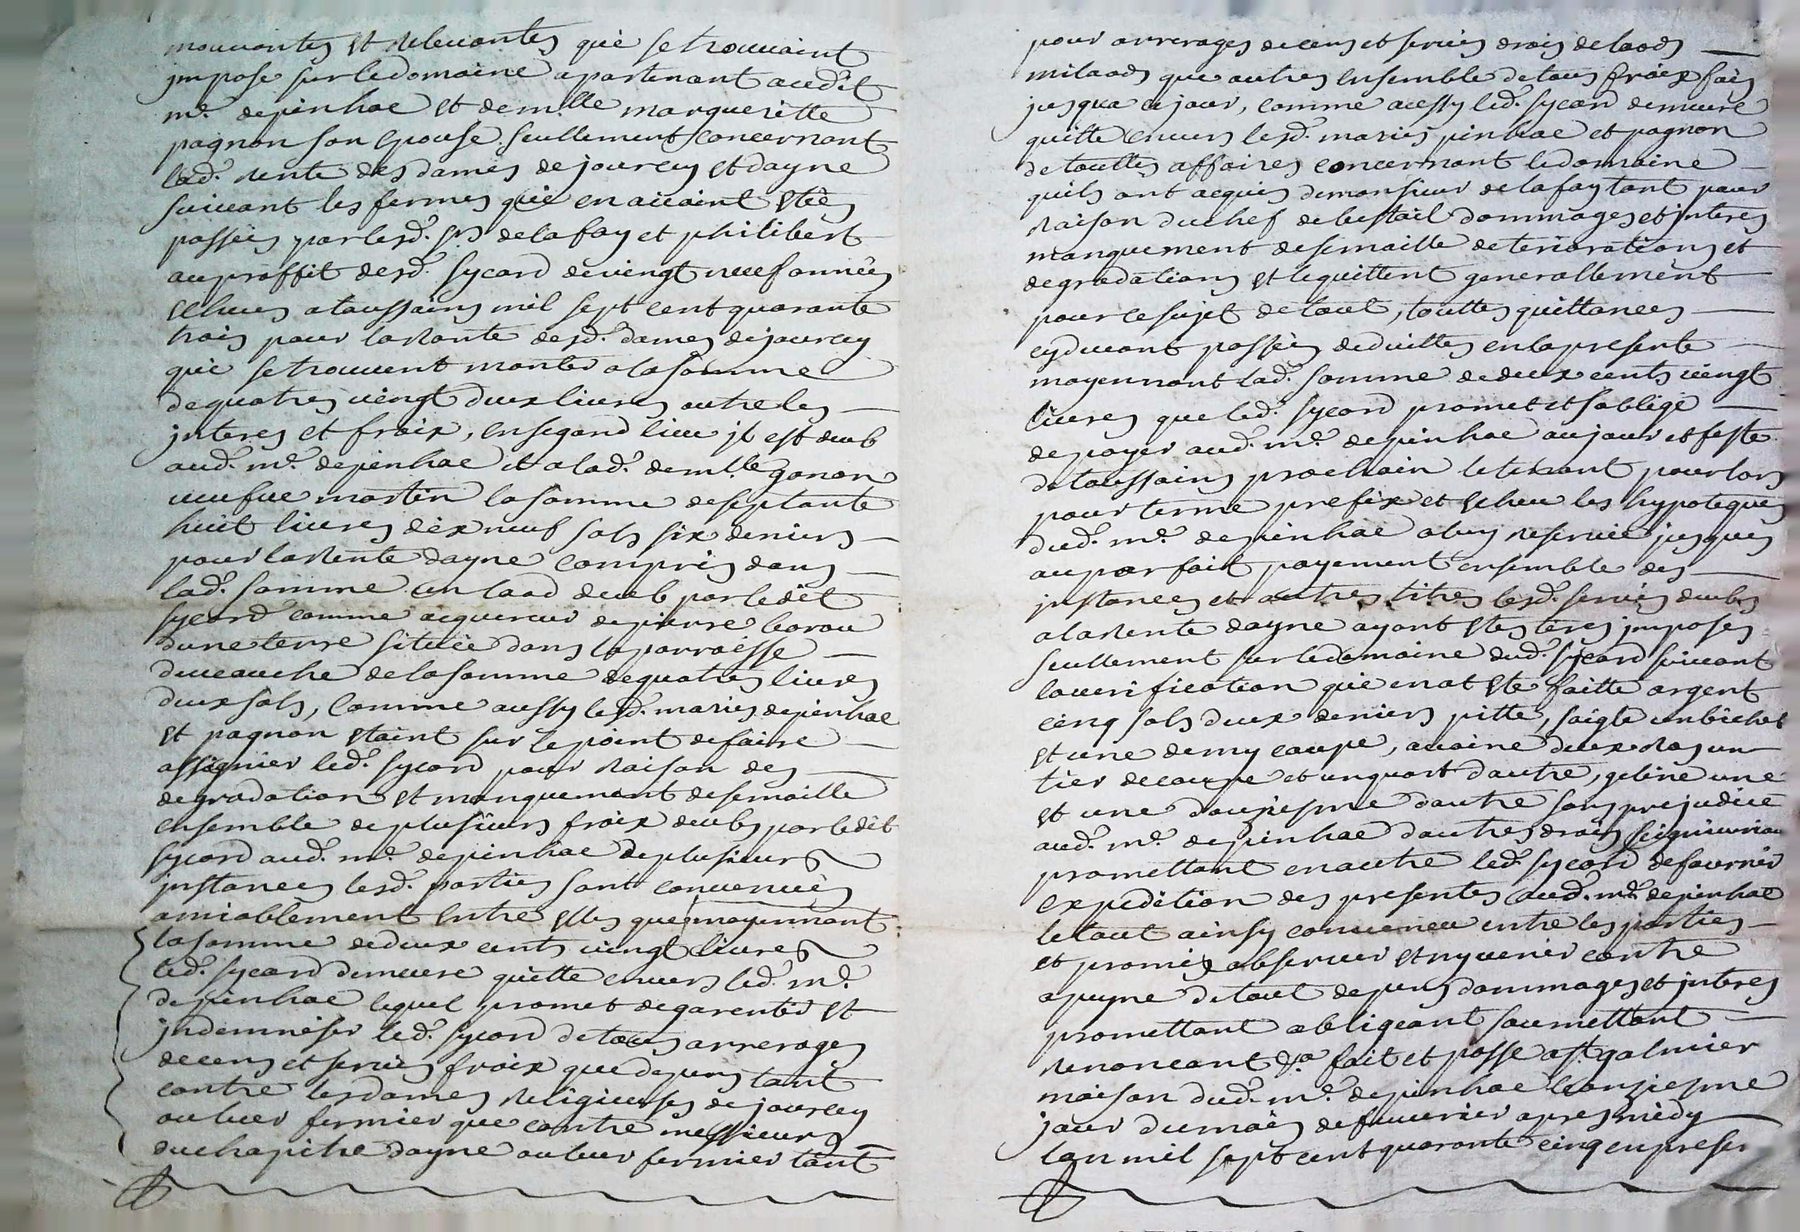 mouvantes et relevantes quie se trouvaint
impose sur le domaine apartenant audit
mr. depinhac et demlle margueritte
pagnon son epouse seullement concernant
lad. rente des dames de jourcey et dayne
suivant les fermes quie en avaint étéés
passéés par lesd. srs de lafay et philibert
au proffit desd. sycard de vingt neuf années
echues a toussains mil sept cent quarante
trois pour la rante desd. dames de jourcey
quie se trouvent monter a la somme
de quatres vingt deux livres outre les
interes et fraix, en segond lieu il est deub
aud. mr. depinhac et a lad. demlle ganon
veufue martin la somme de septante
huit livres dix neuf sols six deniers
pour la rente dayne compris dans
lad. somme un laod deub par ledit
sycard comme acquereur de pierre
dune terre situéé dans la parroisse
de la somme de quatres livres
deux sols, comme aussy lesd. mariés depinhac
et pagnon étaint sur le point de faire
assigner led. sycard pour raison des
degradations et manquement de semaille
ensemble de plusieurs fraix deubs par ledit
sycard aud. mr. depinhac de plusieurs
instances lesd. parties sont convenués
amiablement entre elles que moyennant
la somme de deux cents vingt livres
led. sycard demeure quitte envers led. mr.
depinhac lequel promet de garentir et
indemniser led. sycard de tous arrerages
de cens et servis fraix que depens tant
contre les dames religieuses de jourcey
ou leur fermier que contre messieurs
du chapitre dayne ou leur fermier tant
pour arrerages de cens et servis drois de laods
milaods que autres ensemble de tous fraix fais
jusqua ce jour, comme aussy led. sycard demeure
quitte envers lesd. mariés pinhac et pagnon
de touttes affaires concernant le domaine
quils ont acquis de monsieur de lafay tant pour
raison du chef de bestail dommages et interes
manquement de semaille deteriorations et
degradations et le quittent generallement
pour ce sujet de tout, touttes quittances
cy devant passéés deduittes en la presente
moyennant lad. somme de deux cents vingt
livres que led. sycard promet et soblige
de payer aud. mr. depinhac au jour et feste
de toussains prochain le tenant pour lors
pour terme prefix et echeu les hypoteques
dud. mr. depinhac a luy reservéé jusques
au parfait payement ensemble des
instances et autres titres lesd. servis deubs
a la rente dayne ayant étes imposes
seullement sur le domaine dud. sycard suivant
la verification quie en at été faitte argent
cinq sols deux deniers pitte, saigle un bichet
et une demy coupe, avoine deux ras un
tier de coupe et un quart dautre, geline une
et une douziesme dautre sans prejudice
aud. mr. depinhac dautres drois seigneuriau
promettant en outre led. sycard de fournir
expedition des presentes aud. mr. depinhac
le tout ainsy convenu entre les parties
et promis observer et ny venir contre
a peyne de tout depens dommages et interes
promettant obligeant soumettant
renoncant &a fait et passe a st galmier
maison dud. mr. depinhac le onziesme
jour du mois de feuvrier apres midy
lan mil sept cent quarante cinq en presen